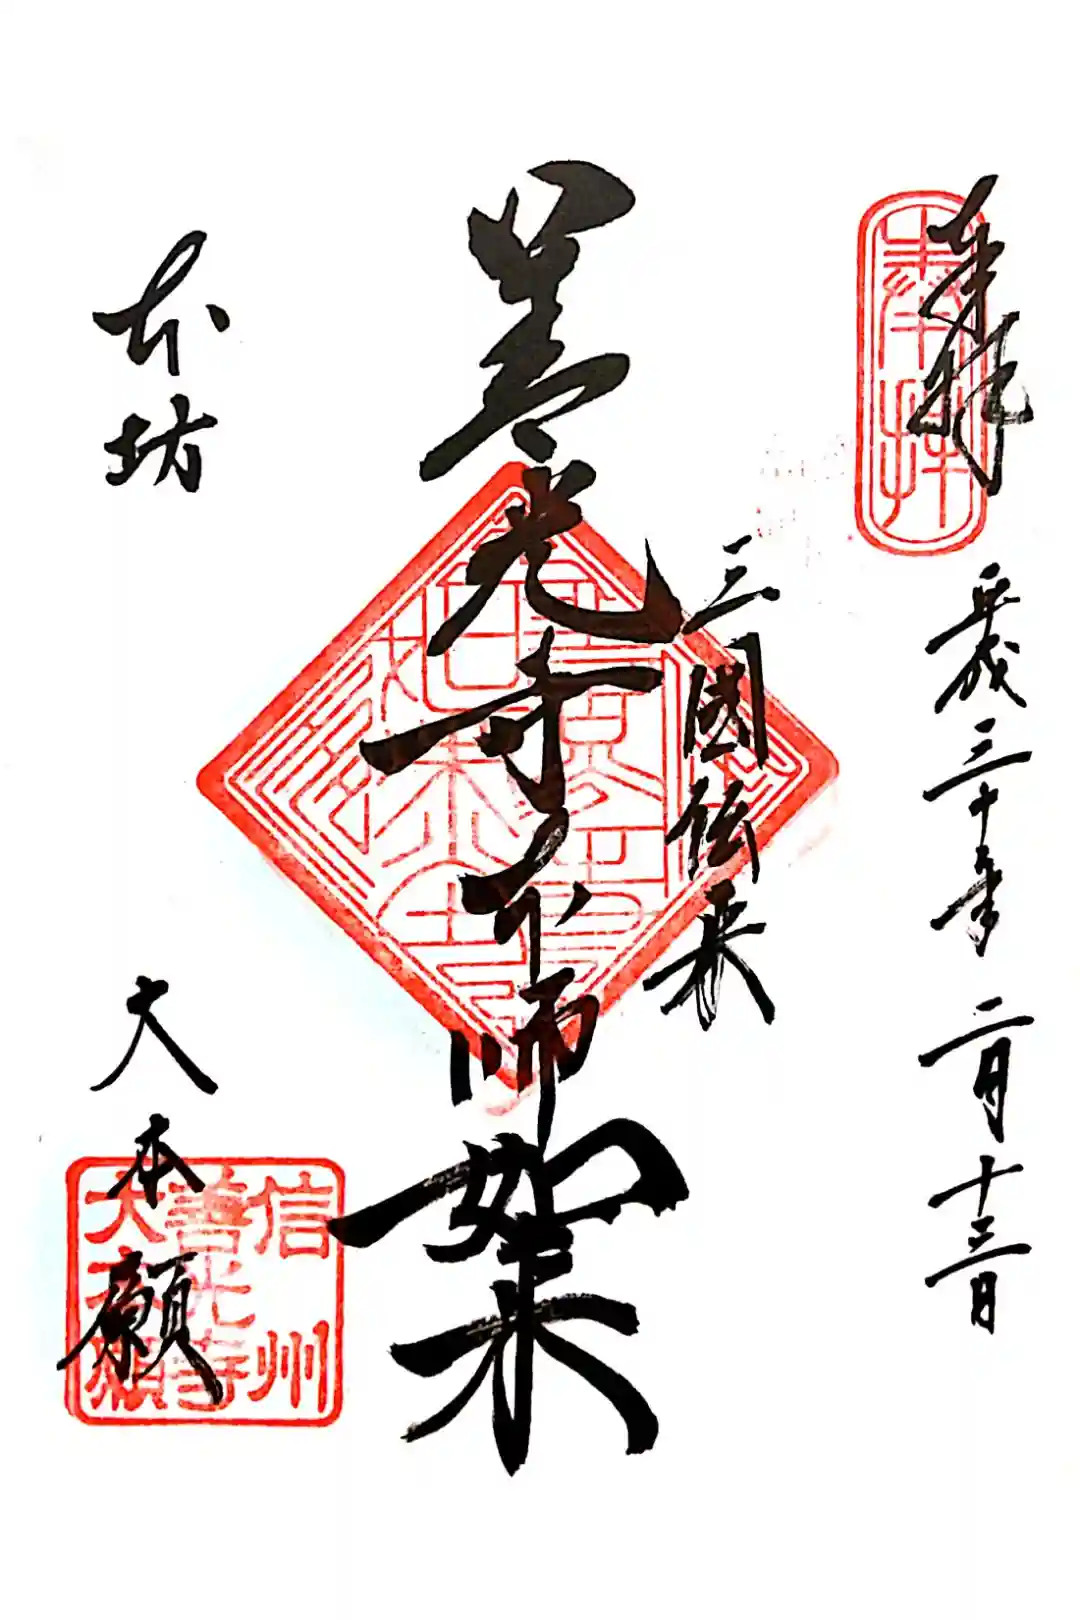 奉拝
奉拝
平成三十年 二月十三日
三國伝来
善光寺本師如来
本坊
大本願
信州
善光寺
大本願